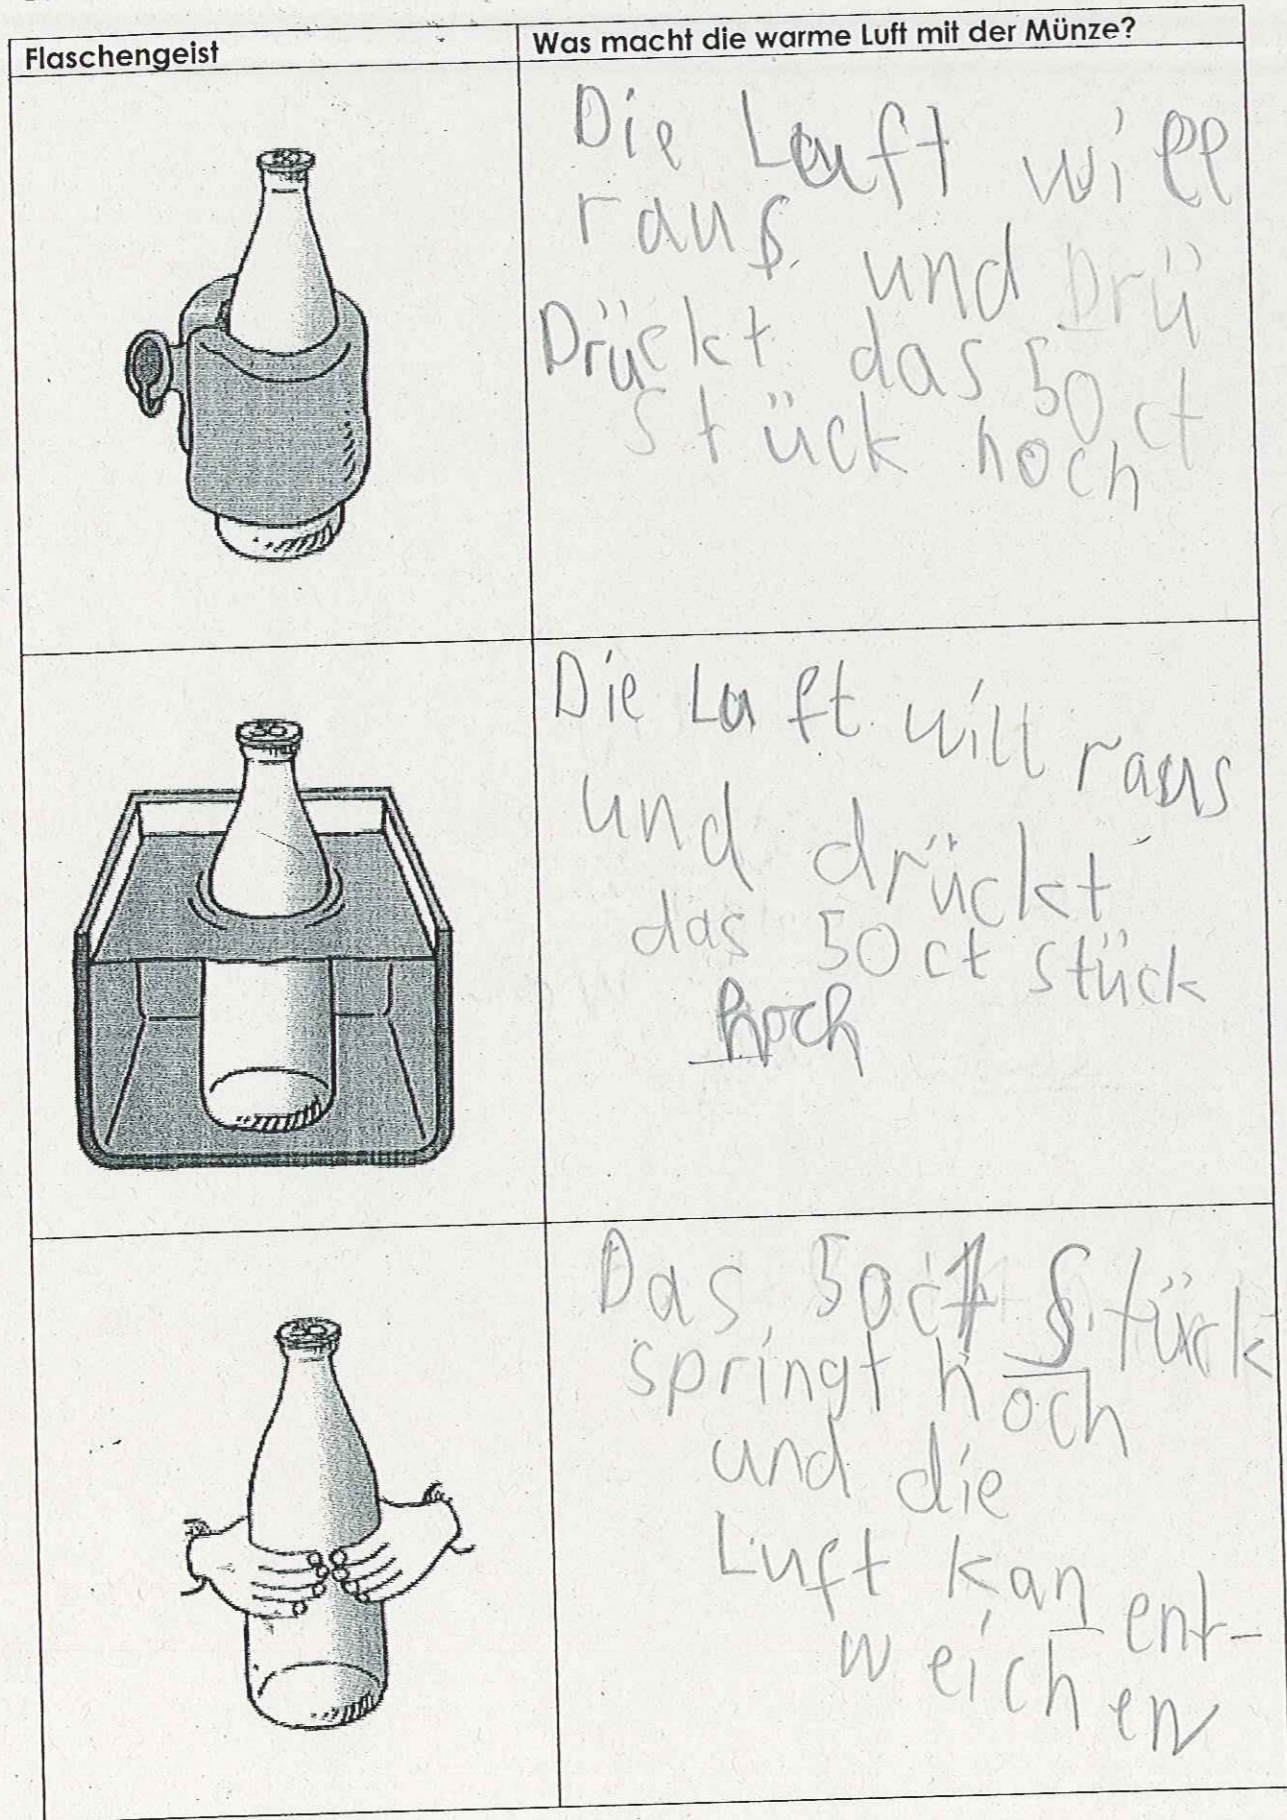 Flaschengeist
Was macht die warme Luft mit der Münze?
Die Luft will
raus und Drü
Drückt das 50 ct
stück hoch
Die Luft will raus
und drückt
das 50 ct stück
hoch
Das 50ct Stück
springt hoch
und die
Luft kan ent-
weichen
50
50
50